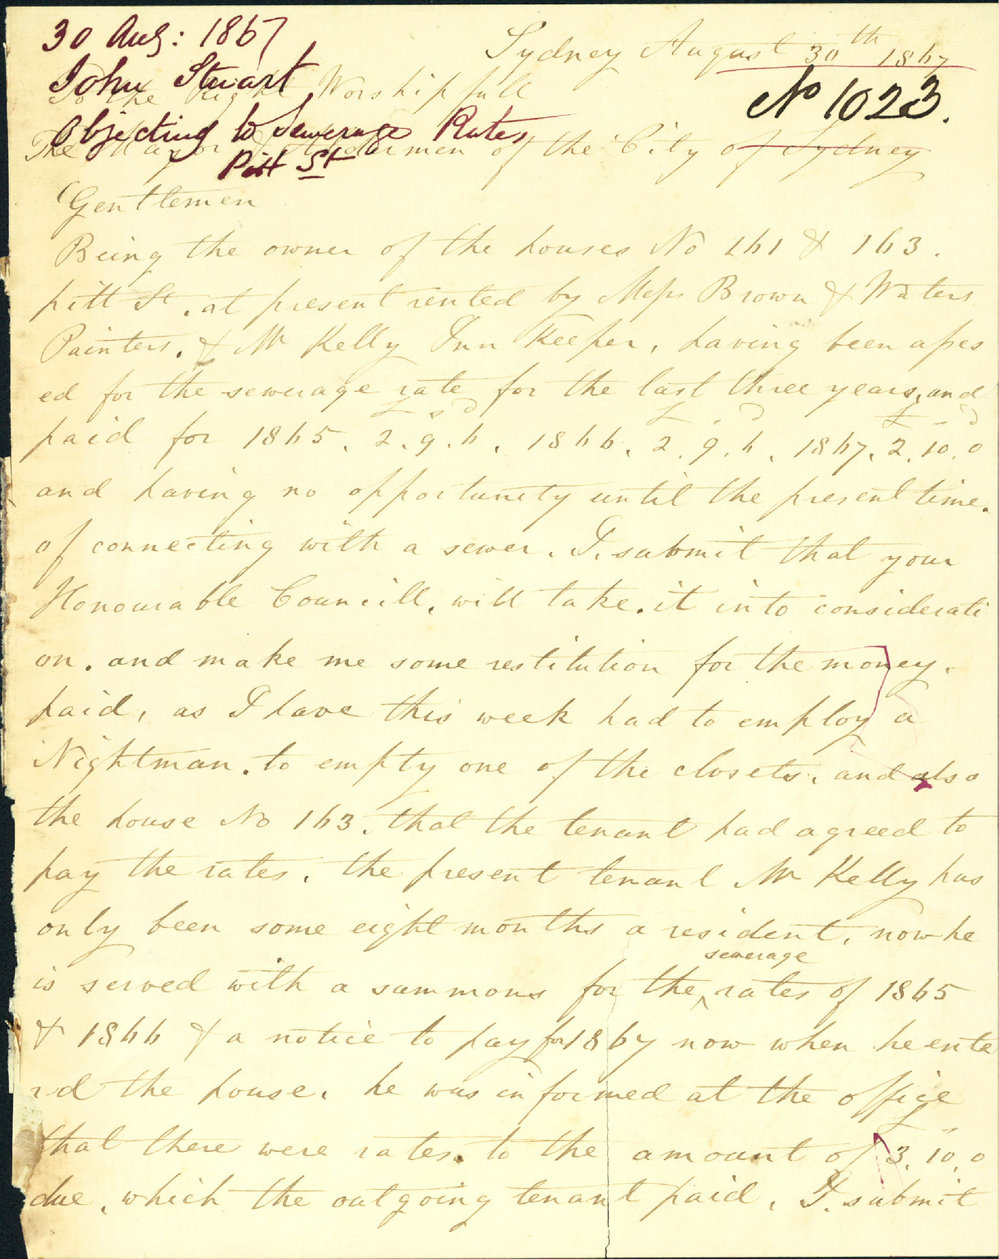 30 Aug: 1867
John Stuart
Objecting to Sewerage Rates
Pitt St
No 1023.
Sydney August 30th 1867
To the Right Worshipfull
The Mayor & Aldermen of the City of Sydney
Gentlemen
Being the owner of the houses No 161 & 163.
pitt St. at present rented by Messrs Brown & Waters
Painters. & Mr Kelly Inn Keeper, having been asses
ed for the sewerage rate for the last three years, and
paid for 1865. £2.9s.6d. 1866. £2.9s.6d. 1867. £2.10.0
and having no opportunity until the present time.
of connecting with a sewer. I. submit that your
Honourable Councill. will take. it into considerati
on. and make me some restitution for the money.
paid, as I have this week had to employ a
Nightman. to empty one of the closets. and also
the house No 163. that the tenant had agreed to
pay the rates. the present tenant Mr Kelly has
only been some eight months a resident, now he
is served with a summons for the sewerage rates of 1865
& 1866 & a notice to pay for 1867 now when he ente
rd the house. he was informed at the office
that there were rates. to the amount of 3.10.0
due. which the outgoing tenant paid. I. submit